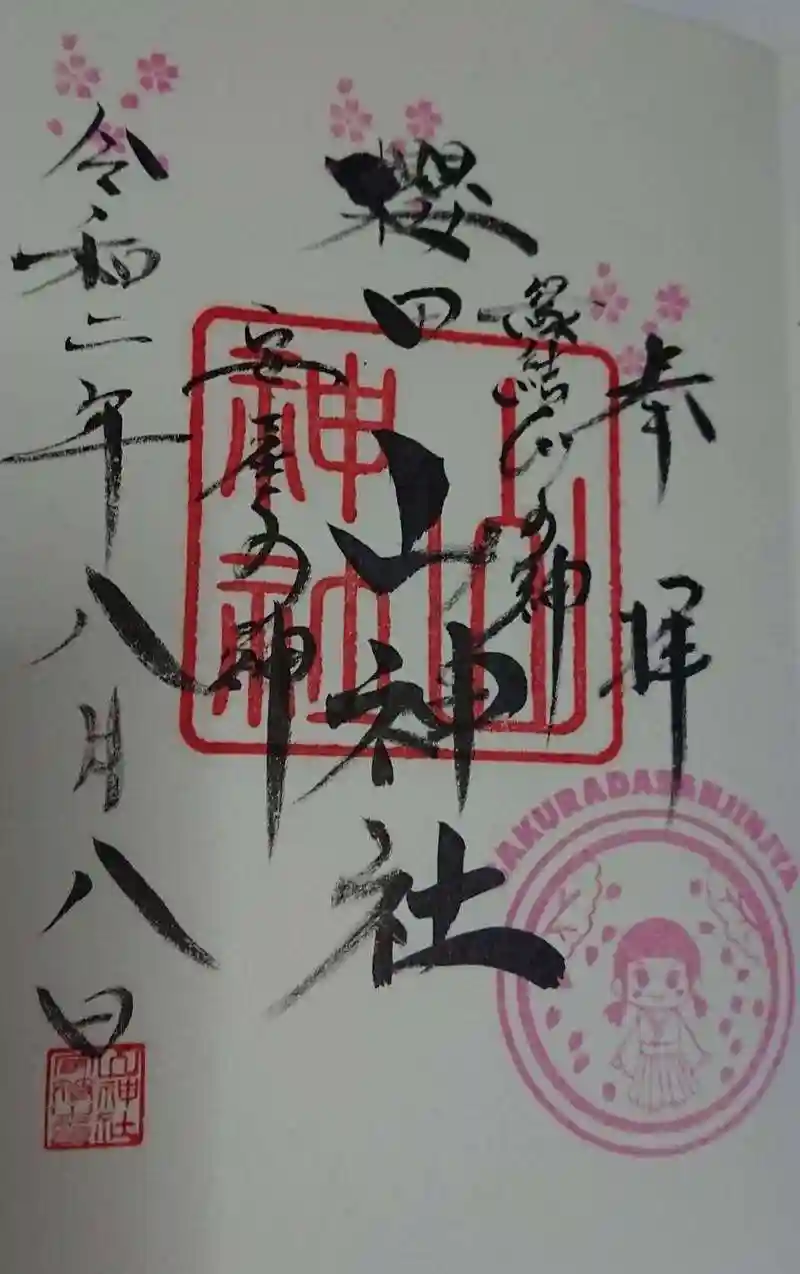 奉拝
縁結びの神
櫻田山神社
安産の神
令和二年八月八日
山神社
SAKURADASANJINJYA